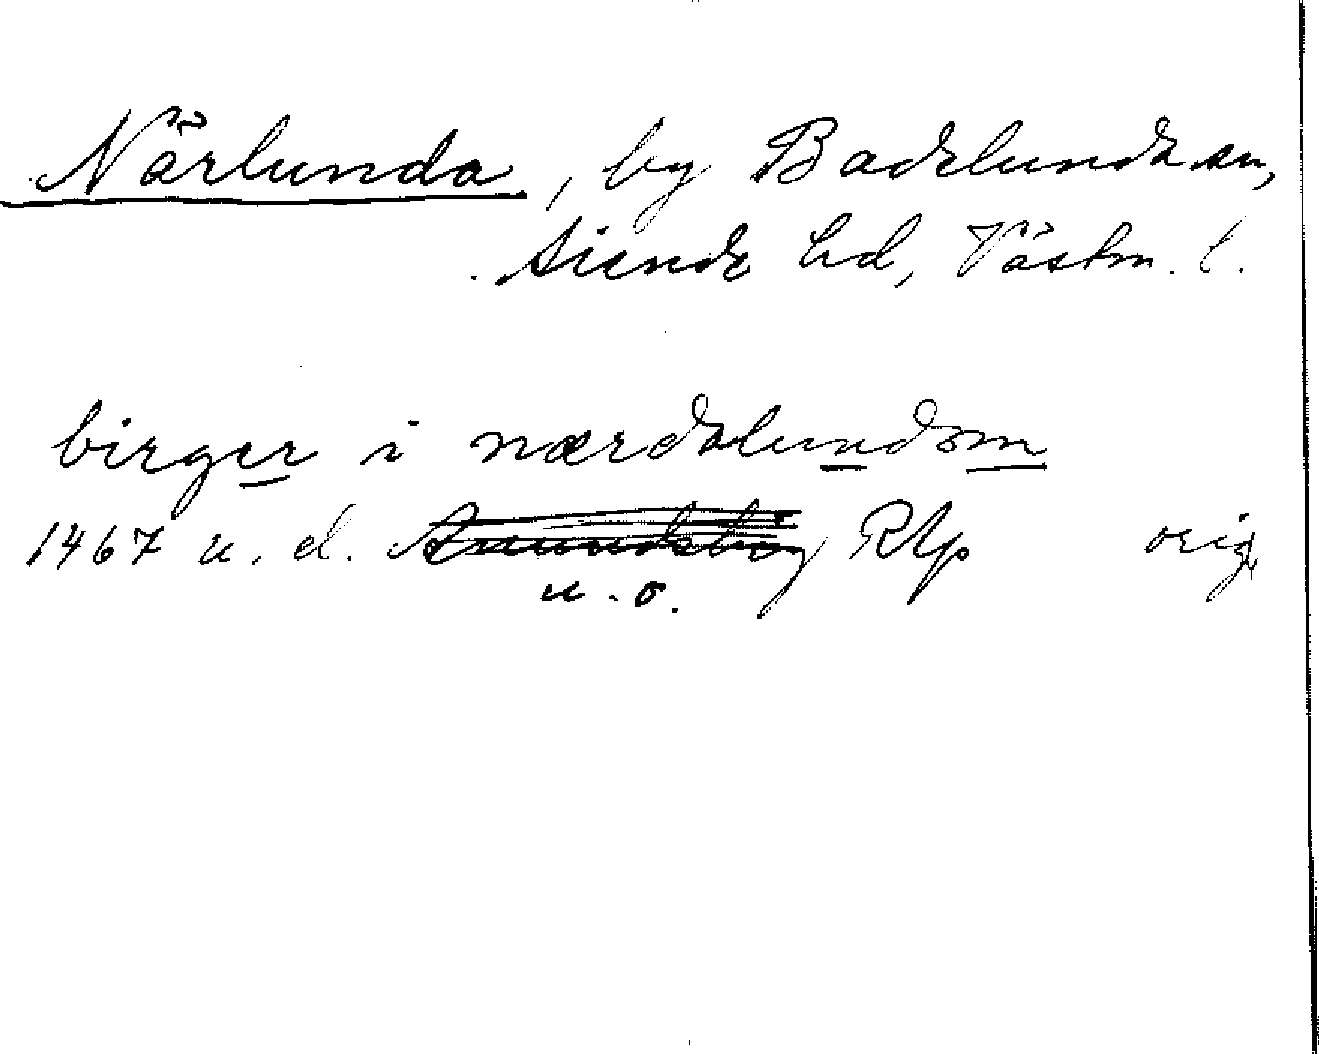 Närlunda, by Badelunda sn,
Siende hd, Västm. l.
birger i nærdalundom
1467 u. d. RAp orig
u. o.